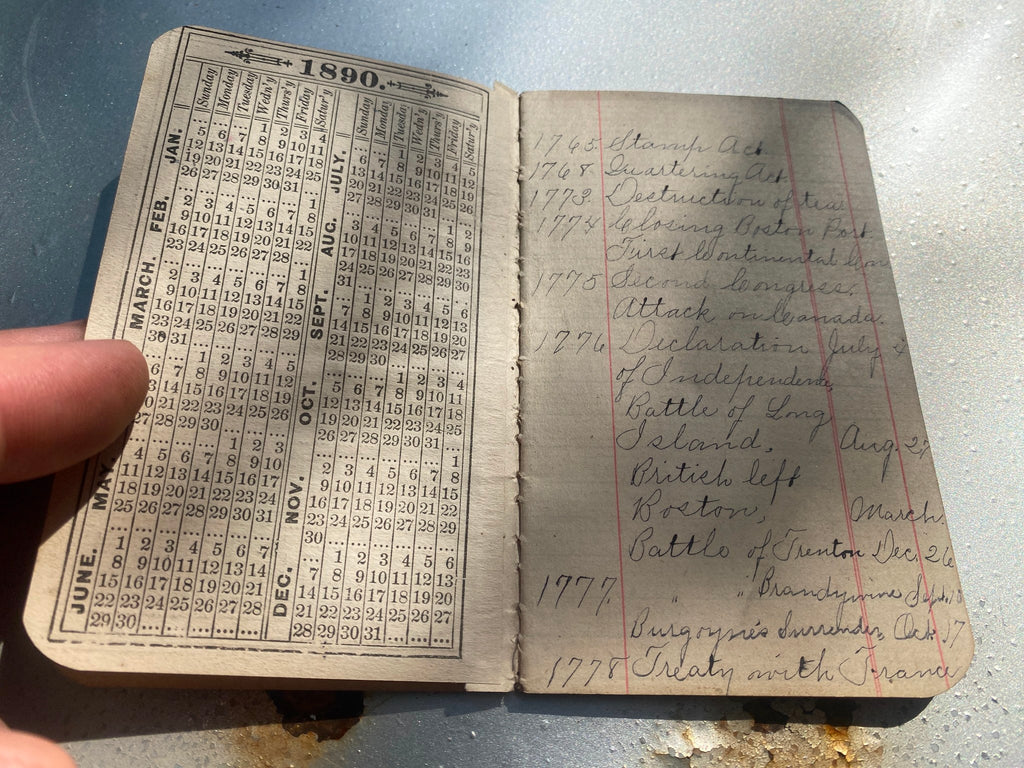 1890.
Sunday Monday Tuesday Wedn'y Thurs'y Friday Satur'y
JAN.
... ... ... 1 2 3 4
5 6 7 8 9 10 11
12 13 14 15 16 17 18
19 20 21 22 23 24 25
26 27 28 29 30 31 ...
FEB.
... ... ... ... ... ... 1
2 3 4 5 6 7 8
9 10 11 12 13 14 15
16 17 18 19 20 21 22
23 24 25 26 27 28 ...
MARCH.
... ... ... ... ... ... 1
2 3 4 5 6 7 8
9 10 11 12 13 14 15
16 17 18 19 20 21 22
23 24 25 26 27 28 29
30 31 ... ... ... ... ...
... 1 2 3 4 5
7 8 9 10 11 12
14 15 16 17 18 19
21 22 23 24 25 26
27 28 29 30 ... ... ...
MAY.
... ... ... ... 1 2 3
4 5 6 7 8 9 10
11 12 13 14 15 16 17
18 19 20 21 22 23 24
25 26 27 28 29 30 31
JUNE.
1 2 3 4 5 6 7
8 9 10 11 12 13 14
15 16 17 18 19 20 21
22 23 24 25 26 27 28
29 30 ... ... ... ... ...
Sunday Monday Tuesday Wedn'y Thurs'y Friday Satur'y
JULY.
... ... 1 2 3 4 5
6 7 8 9 10 11 12
13 14 15 16 17 18 19
20 21 22 23 24 25 26
27 28 29 30 31 ... ...
AUG.
... ... ... ... ... 1 2
3 4 5 6 7 8 9
10 11 12 13 14 15 16
17 18 19 20 21 22 23
24 25 26 27 28 29 30
31 ... ... ... ... ... ...
SEPT.
... 1 2 3 4 5 6
7 8 9 10 11 12 13
14 15 16 17 18 19 20
21 22 23 24 25 26 27
28 29 30 ... ... ... ...
OCT.
... ... ... 1 2 3 4
5 6 7 8 9 10 11
12 13 14 15 16 17 18
19 20 21 22 23 24 25
26 27 28 29 30 31 ...
NOV.
... ... ... ... ... ... 1
2 3 4 5 6 7 8
9 10 11 12 13 14 15
16 17 18 19 20 21 22
23 24 25 26 27 28 29
30 ... ... ... ... ... ...
DEC.
... 1 2 3 4 5 6
7 8 9 10 11 12 13
14 15 16 17 18 19 20
21 22 23 24 25 26 27
28 29 30 31 ... ... ...
1765 Stamp Act.
1768 Quartering Act.
1773 Destruction of tea
1774 Closing Boston Port.
First Continental Con
1775 Second Congress.
Attack on Canada.
1776 Declaration July 4
of Independence
Battle of Long
Island, Aug. 27
British left
Boston, March.
Battle of Trenton Dec. 26
1777. " " Brandywine Sept.
Burgoyne's Surrender, Oct. 17
1778 Treaty with France